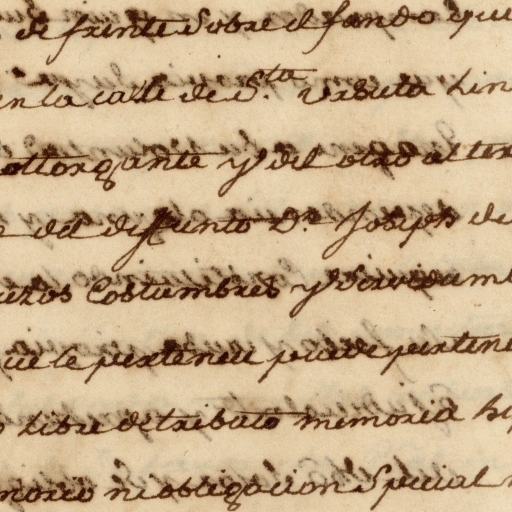 de frente sobre el fando que
en la calle de S.ta Ursula lin
ottorgante y del otro al ter
e del difunto Dn Joseph de
uzos Costumbres y Servidumb
que le pertenece puede pertene
o libre de tributo memoria hip
morio ni obligacion Special